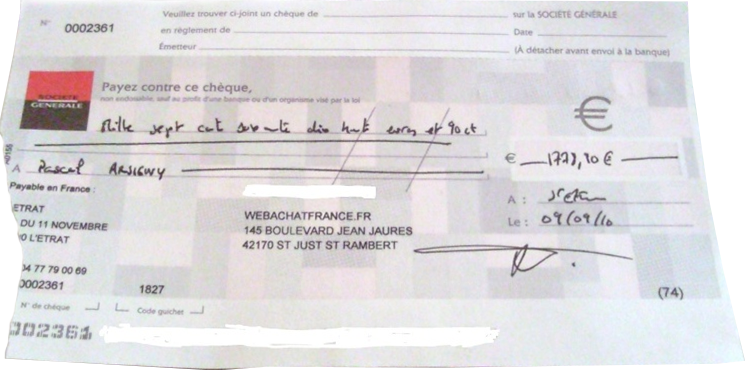 Veuillez trouver ci-joint un chèque de sur la SOCIÉTÉ GÉNÉRALE
N° 0002361 en règlement de Date
Émetteur (À détacher avant envoi à la banque)
SOCIETE GENERALE
Payez contre ce chèque,
non endossable, sauf au profit d'une banque ou d'un organisme visé par la loi
€
Mille sept cent soixante dix huit euros et 90 ct
€ 1778,90 €
A Pascal ARSIGNY
Payable en France :
A :
ETRAT
Le : 09/09/10
DU 11 NOVEMBRE
0 L'ETRAT
WEBACHATFRANCE.FR
145 BOULEVARD JEAN JAURES
42170 ST JUST ST RAMBERT
04 77 79 00 69
0002361 1827
(74)
N° de chèque Code guichet
002361